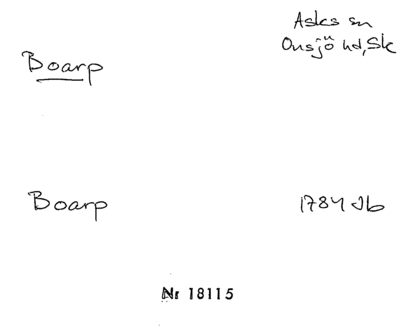 Asks sn
Onsjö hd, Sk
Boarp
Boarp
1784 Jb
Nr 18115